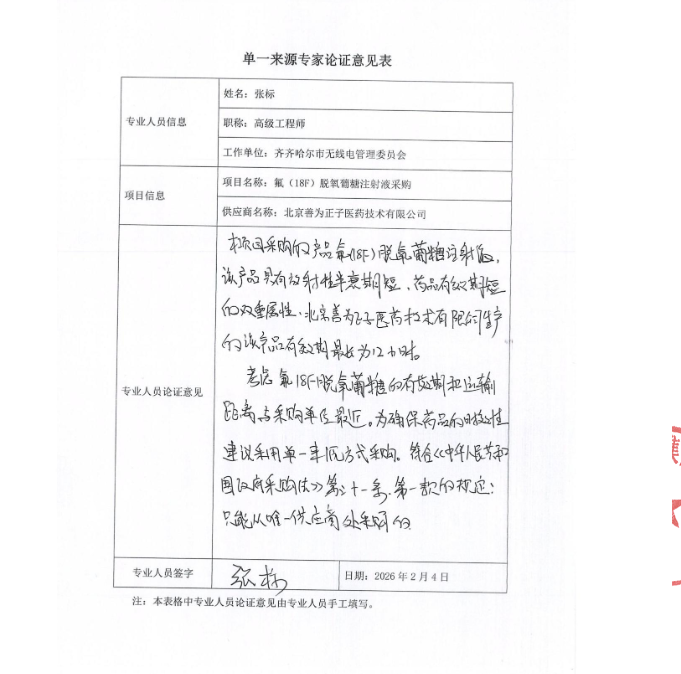 单一来源专家论证意见表
专业人员信息
姓名：张标
职称：高级工程师
工作单位：齐齐哈尔市无线电管理委员会
项目信息
项目名称：氟（18F）脱氧葡糖注射液采购
供应商名称：北京善为正子医药技术有限公司
专业人员论证意见
本项目采购的产品氟(18F)脱氧葡糖注射液，
该产品具有放射性半衰期短、药品有效期短
的双重属性，北京善为正子医药技术有限公司生产
的该产品有效期最长为12小时。
考虑氟18F脱氧葡糖的有效期和运输
距离与采购单位最近。为确保药品的时效性
建议采用单一来源方式采购。符合《中华人民共和
国政府采购法》第三十一条.第一款的规定：
只能从唯一供应商处采购的
专业人员签字
张标
日期：2026 年 2 月 4 日
注：本表格中专业人员论证意见由专业人员手工填写。